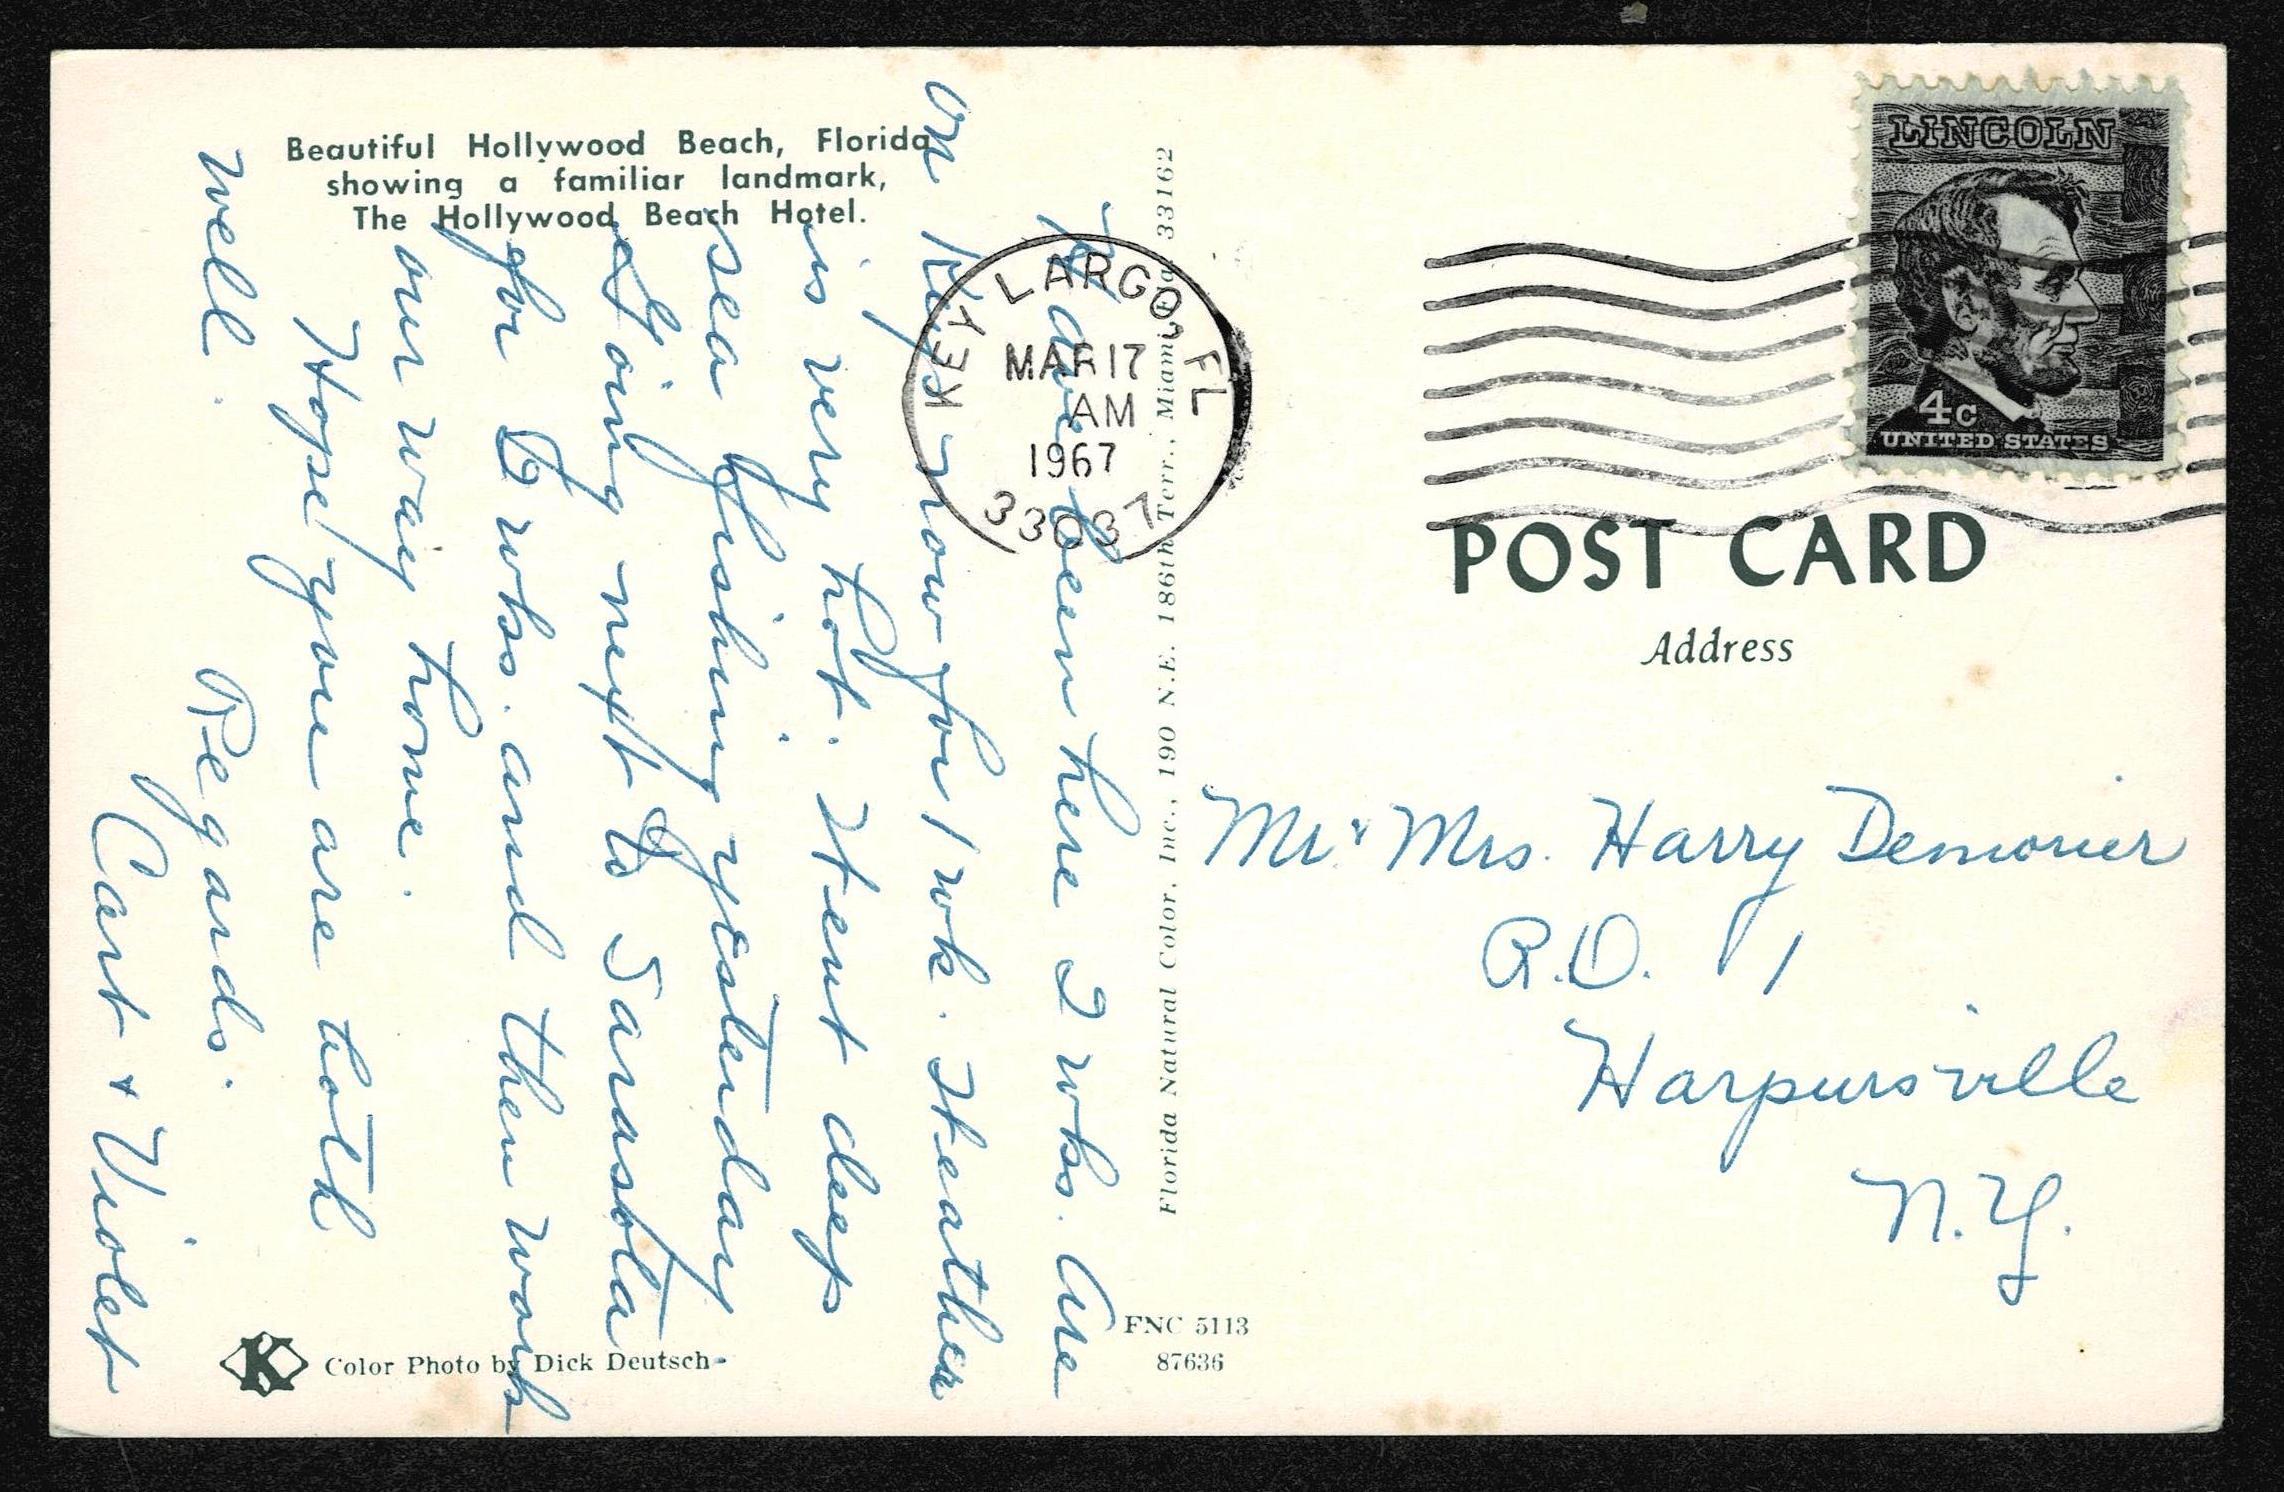 Beautiful Hollywood Beach, Florida
showing a familiar landmark,
The Hollywood Beach Hotel.
Have been here 2 wks. Are
on Keys now for 1 wk. Weather
is very hot. Went deep
sea fishing yesterday
Going next to Sarasota
for 2 wks. and then work
our way home.
Hope you are both
well.
Regards.
Cart + Violet
Color Photo by Dick Deutsch
Florida Natural Color, Inc., 190 N.E. 186th Terr., Miami, Fla. 33162
FNC 5113
87636
KEY LARGO, FL
MAR 17
AM
1967
33037
LINCOLN
4c
UNITED STATES
POST CARD
Address
Mr & Mrs. Harry Demorier
R.D. 1
Harpursville
N.Y.